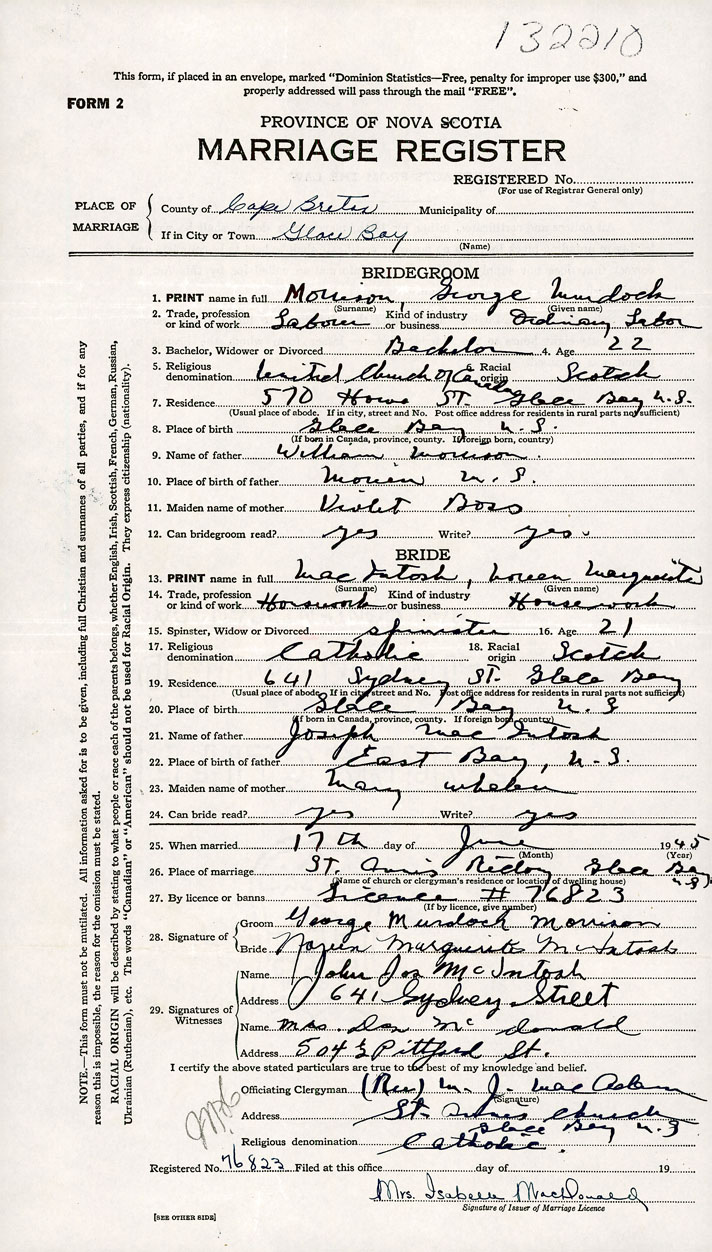 132210
This form, if placed in an envelope, marked "Dominion Statistics—Free, penalty for improper use $300," and
properly addressed will pass through the mail "FREE".
FORM 2
PROVINCE OF NOVA SCOTIA
MARRIAGE REGISTER
REGISTERED No.
(For use of Registrar General only)
PLACE OF MARRIAGE
County of Cape Breton Municipality of
If in City or Town Glace Bay
(Name)
BRIDEGROOM
1. PRINT name in full Morrison, George Murdock
(Surname) (Given name)
2. Trade, profession or kind of work Laborer Kind of industry or business Ordinary Labor
3. Bachelor, Widower or Divorced Bachelor 4. Age 22
5. Religious denomination United Church of Canada 6. Racial origin Scotch
7. Residence 570 Howe ST. Glace Bay N.S.
(Usual place of abode. If in city, street and No. Post office address for residents in rural parts not sufficient)
8. Place of birth Glace Bay N.S.
(If born in Canada, province, county. If foreign born, country)
9. Name of father William Morrison
10. Place of birth of father Morien N.S.
11. Maiden name of mother Violet Boss
12. Can bridegroom read? yes Write? yes
BRIDE
13. PRINT name in full Mac Intosh, Noreen Marguerite
(Surname) (Given name)
14. Trade, profession or kind of work Housework Kind of industry or business Housework
15. Spinster, Widow or Divorced spinister 16. Age 21
17. Religious denomination Catholic 18. Racial origin Scotch
19. Residence 641 Sydney ST. Glace Bay
(Usual place of abode. If in city, street and No. Post office address for residents in rural parts not sufficient)
20. Place of birth Glace Bay N.S
(If born in Canada, province, county. If foreign born, country)
21. Name of father Joseph Mac Intosh
22. Place of birth of father East Bay, N.S.
23. Maiden name of mother Mary whelan
24. Can bride read? yes Write? yes
25. When married 17th day of June 1945
(Month) (Year)
26. Place of marriage ST. Anns Glace Bay N.S.
(Name of church or clergyman's residence or location of dwelling house)
27. By licence or banns Licence # 76823
(If by licence, give number)
28. Signature of
Groom George Murdock Morrison
Bride Noreen Marguerite McIntosh
29. Signatures of Witnesses
Name John Jos McIntosh
Address 641 Sydney Street
Name Mrs. Dan Mc donald
Address 504 Pittford St.
I certify the above stated particulars are true to the best of my knowledge and belief.
Officiating Clergyman (Rev) M. J. Mac Adam
(Signature)
Address St. Anns Church
Glace Bay N.S
Religious denomination Catholic.
Registered No. 76823 Filed at this office day of 19
Mrs. Isabelle MacDonald
Signature of Issuer of Marriage Licence
[SEE OTHER SIDE]
NOTE.—This form must not be mutilated. All information asked for is to be given, including full Christian and surnames of all parties, and if for any
reason this is impossible, the reason for the omission must be stated.
RACIAL ORIGIN will be described by stating to what people or race each of the parents belongs, whether English, Irish, Scottish, French, German, Russian,
Ukrainian (Ruthenian), etc. The words "Canadian" or "American" should not be used for Racial Origin. They express citizenship (nationality).